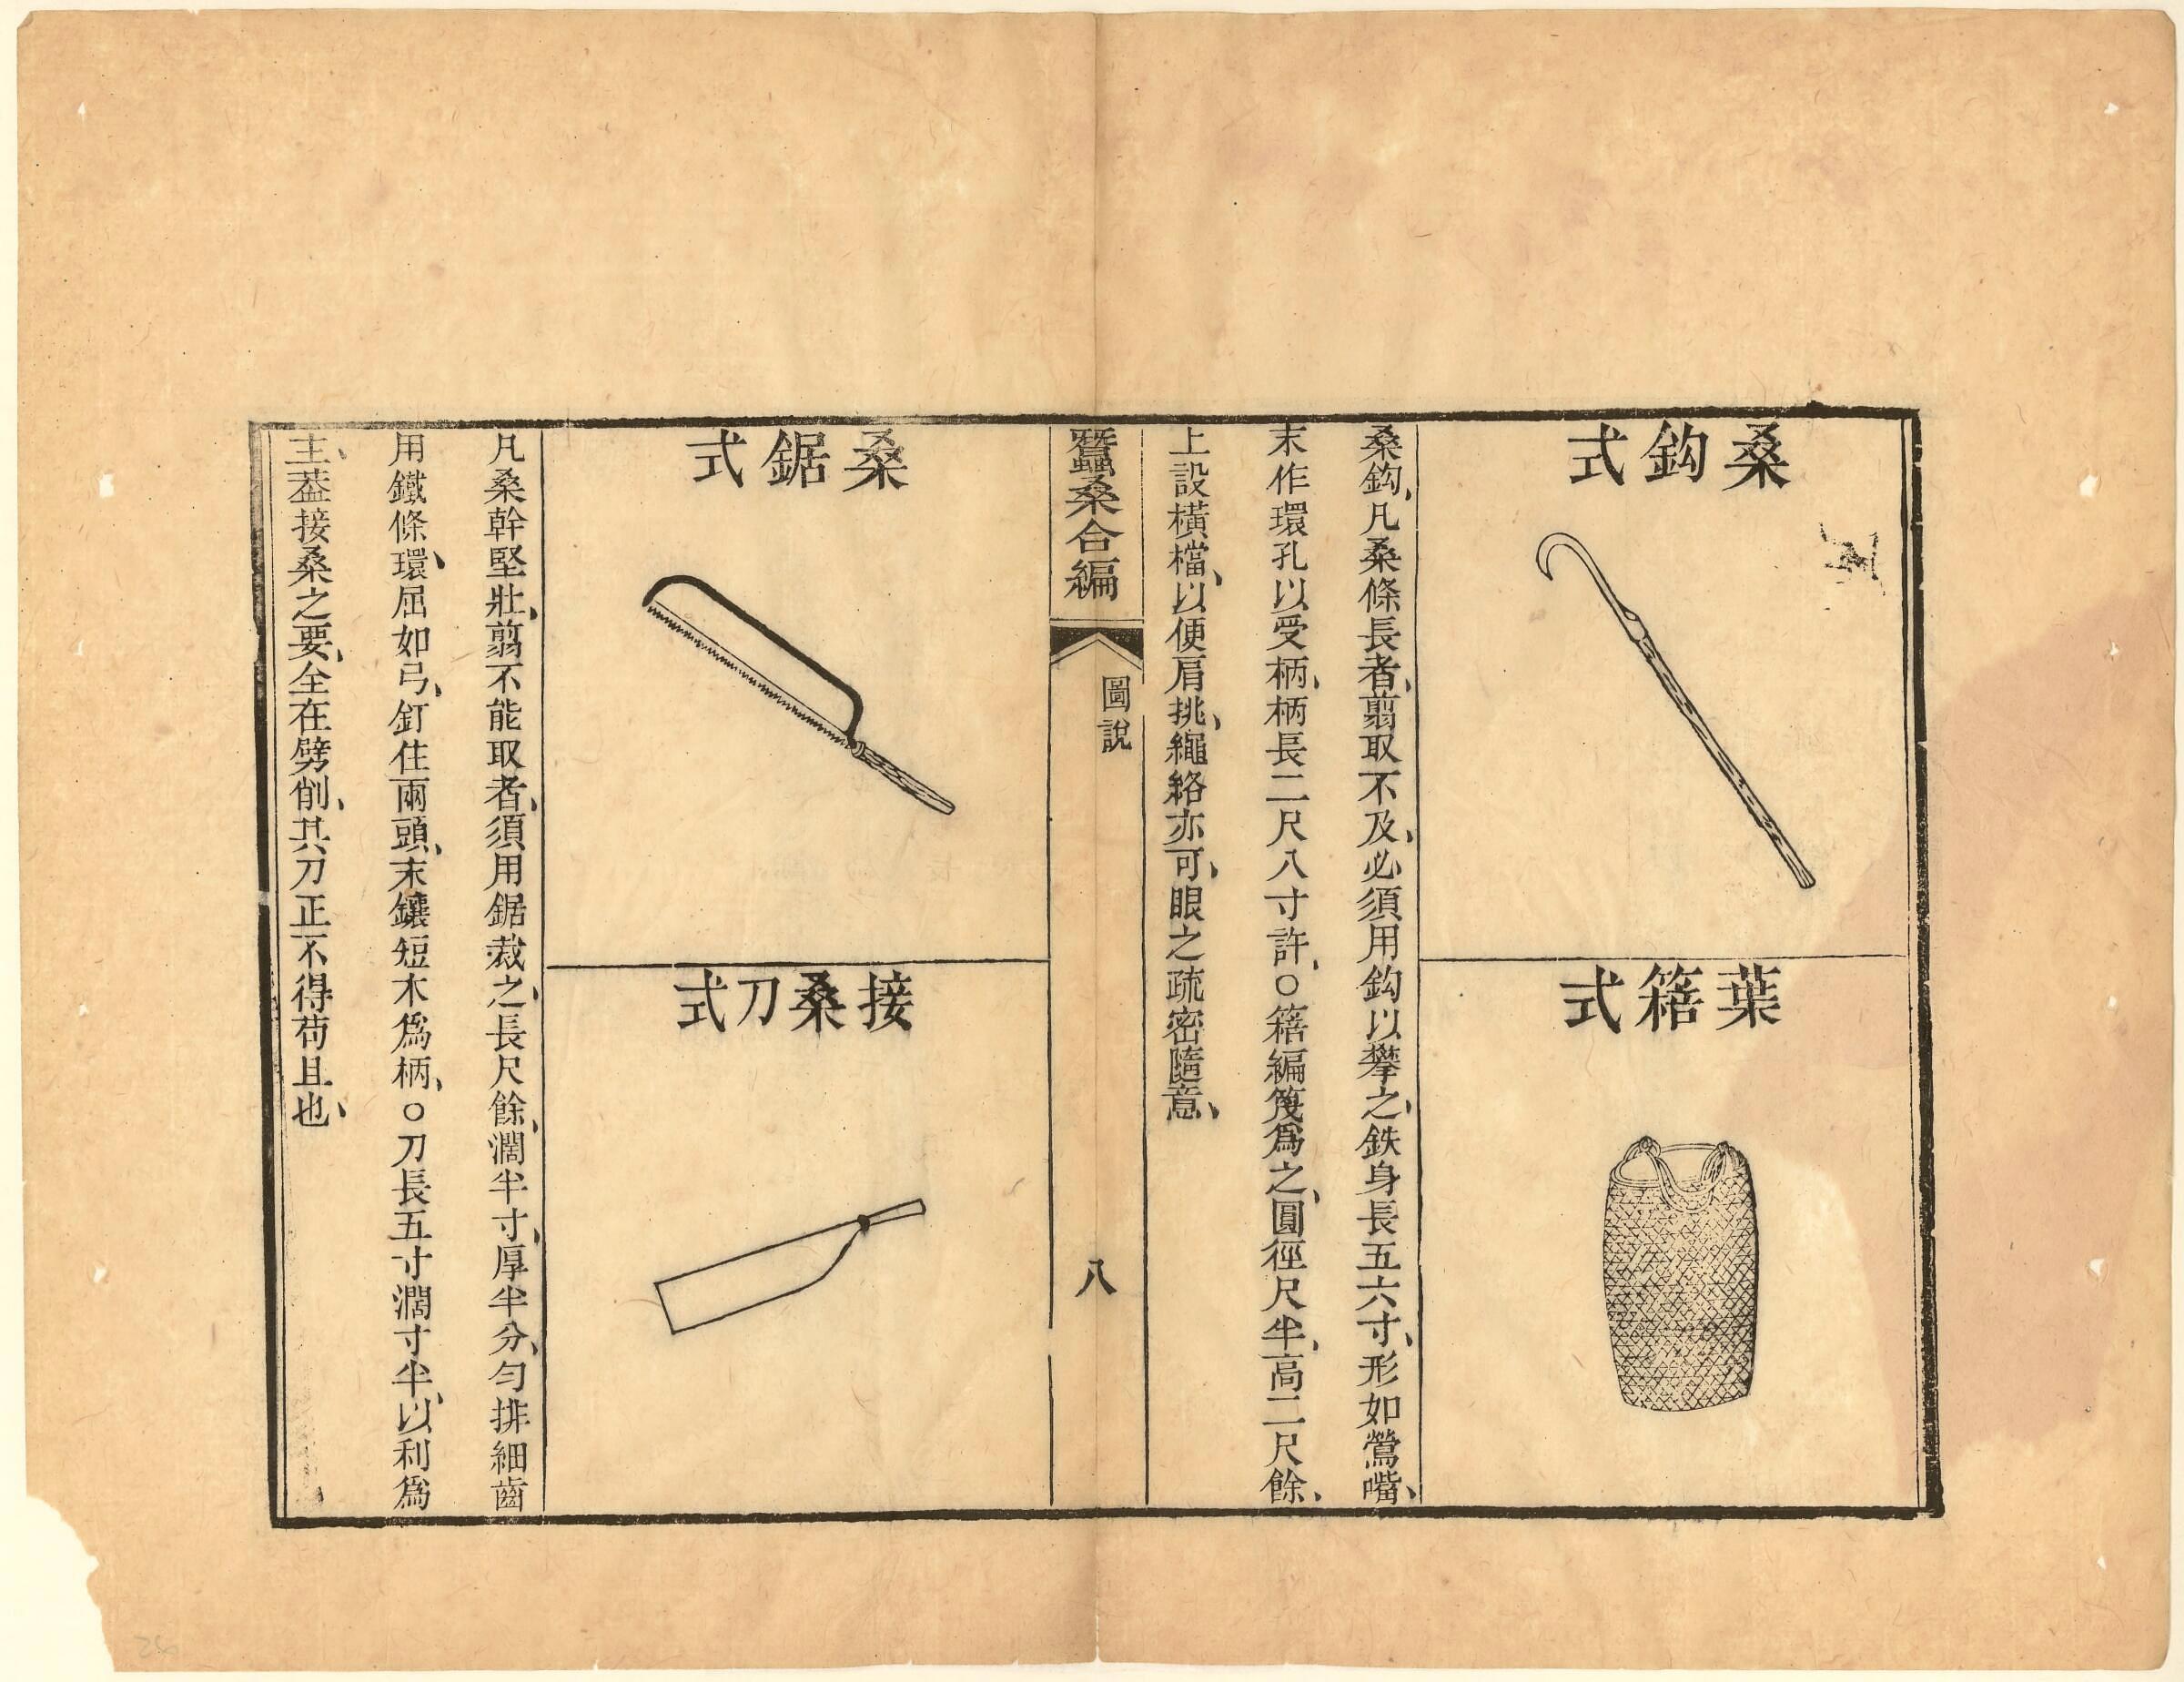 桑鈎式
葉簎式
桑鈎、凡桑條長者、翦取不及、必須用鈎以攀之、鉄身長五六寸、形如鶯嘴、
末作環孔以受柄、柄長二尺八寸許、○簎編篾爲之、圓徑尺半、高二尺餘、
上設橫檔、以便肩挑、繩絡亦可、眼之疏密隨意、
蠶桑合編
圖說
八
桑鋸式
接桑刀式
凡桑幹堅壯、翦不能取者、須用鋸裁之、長尺餘、濶半寸、厚半分、勻排細齒
用鐵條、環屈如弓、釘住兩頭、末鑲短木爲柄、○刀長五寸濶寸半、以利爲
主、葢接桑之要、全在劈削、其刀正不得苟且也、